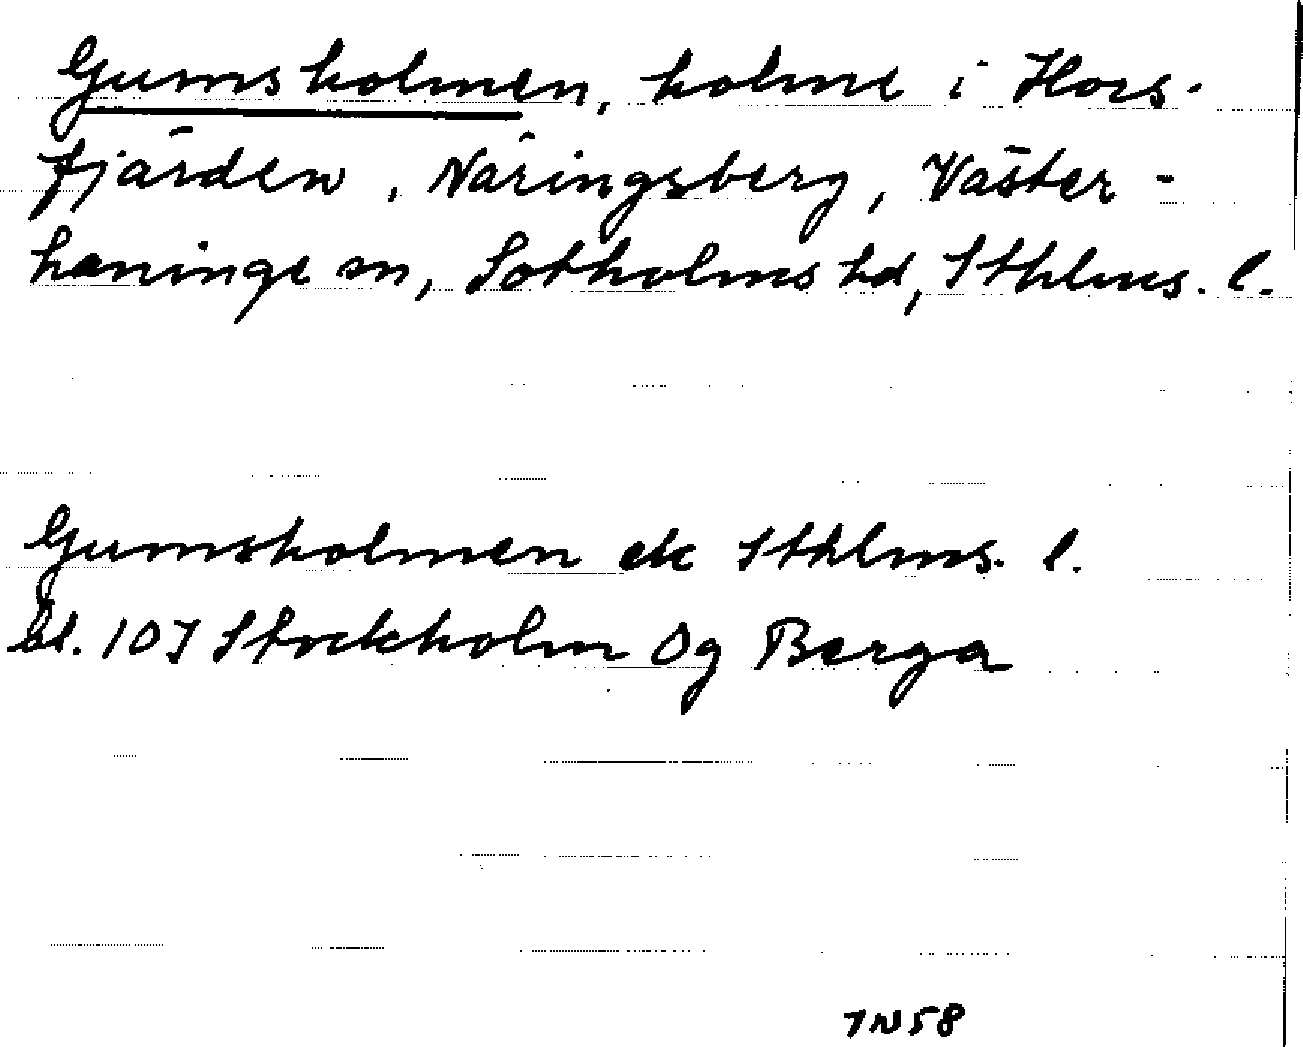 Gumsholmen, holme i Hors-
fjärden, Näringsberg, Väster-
haninge sn, Sotholms hd, Sthlms. l.
Gumsholmen ek Sthlms. l.
bl. 10J Stockholm Og Berga
IN58